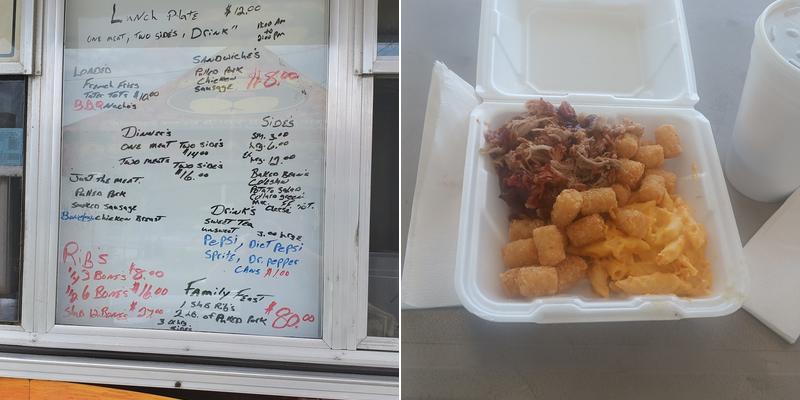 Lunch Plate $12.00
ONE MEAT, TWO SIDES, DRINK"
11:00 AM
to
2:00 pm
LOADED
French Fries
Tater Tots $10.00
BBQ Nacho's
SANDWICHE'S
Pulled Pork
Chicken
Sausage
$8.00
Dinner's
ONE MEAT Two Side's
$14.00
TWO MEATS Two Side's
$16.00
SIDE'S
SM. 3.00
Lrg. 6.00
BAKED BEAN'S
Coleslaw
POTATO SALAD
Collard green
JUST THE MEAT.
PULLED PORK
SMOKED SAUSAGE
Boneless Chicken Breast
DRINK'S
SWEET TEA
unsweet 3.00 Large
Pepsi, Diet Pepsi
Sprite, Dr. pepper
CANS $1.00
RiB'S
1/4 3 BONES $8.00
1/2 6 BONES $16.00
Slab 12 BONES $27.00
Family Feast
1 Slab Rib's
2 lb. of Pulled Pork
$80.00